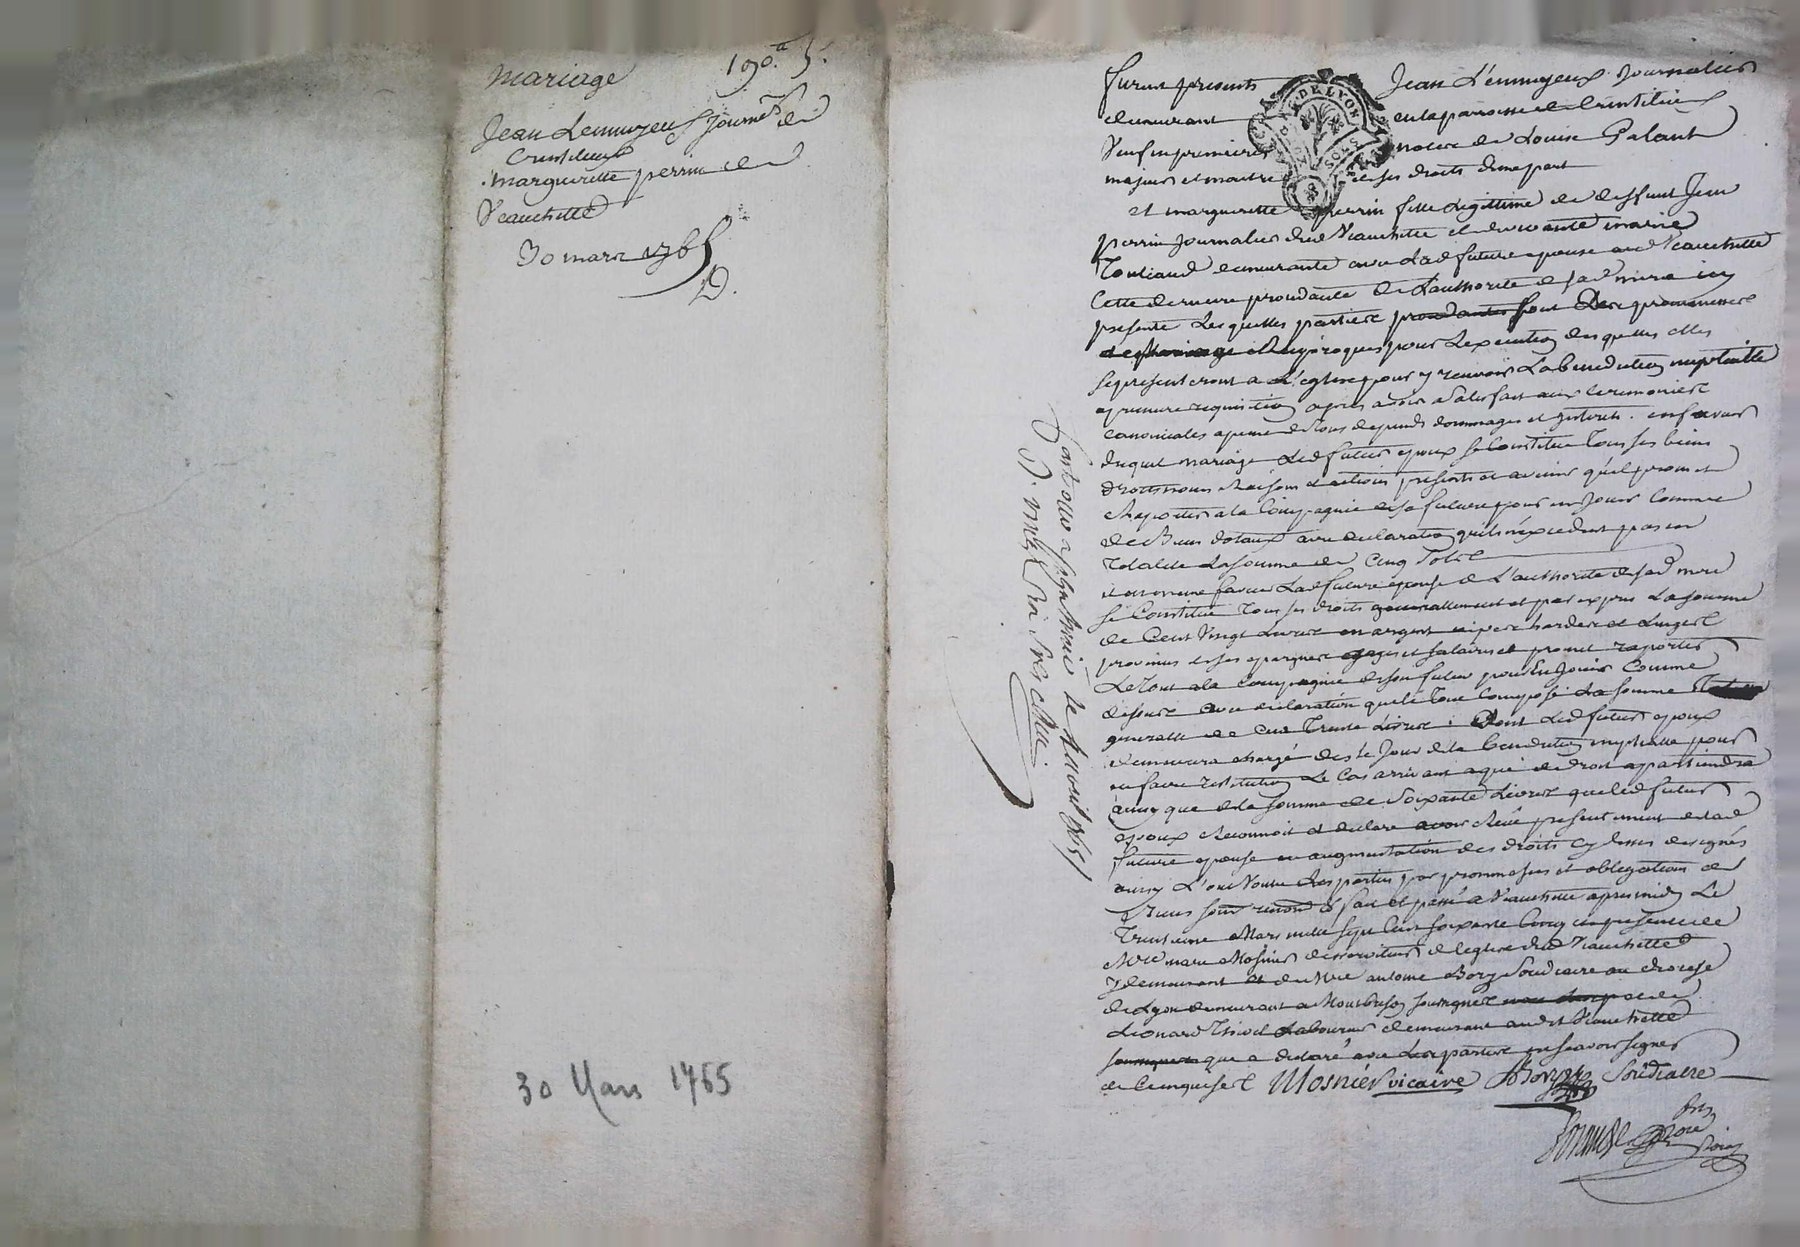 mariage
Jean Lemuzeu Journer de
Crintilieux
marguerette perrin de
Veauchette
30 mars 1765
D.
30 Mars 1765
furent presents Jean L'emuyeux Journalier
demeurant en la paroisse de Crintilieu
Veuf en premieres noces de Louise Palant
majeur et maitre de ses droits d'une part
GEN.ALITE DE LYON
SOLS
et marguerette perrin fille Legittime de deffunt Jean
perrin Journalier dud Veauchette et de vivante marie
demeurante avec Lad future epouse aud Veauchette
Cette derniere procedante de L'authorité de sad mere icy
presente Lesquelles parties font les promesses
de mariage reciproques pour L'execution desquelles elles
se presenteront a L'eglise pour y recevoir La benediction nuptialle
a premiere requisition apres avoir satisfait aux ceremonies
canoniales a peine de tous depends dommages et interets. en faveur
duquel mariage Led futur epoux se Constitue tous ses biens
droits noms raisons et actions presents et avenir qu'il promet
raporter a la Compagnie de sa future pour en Jouir Comme
de Biens dotaux avec declaration qu'ils n'excedent pas en
Totalité La somme de Cinq sols
et en meme faveur Lad future epouse de L'authorité de sad mere
se Constitue Tous ses droits generallement et par expres La somme
de Cent Vingt Livres en argent nipes hardes et Linges
provenus de ses epargnes gages et salaires et promet raporter
Le Tout a la Compagnie de son futur pour En Jouir Comme
dessus avec declaration que le tout Compose La somme
generalle de Cent Trente Livres dont Led futur epoux
demeurera chargé des le Jour de la benediction nuptialle pour
en faire restitution Le Cas arrivant a qui de droit apartiendra
ainsy que de la somme de Soixante Livres que led futur
epoux reconnoit et declare avoir receu presentement de lad
future epouse en augmentation des droits cy dessus designés
ainsy L'ont Voulu Les parties par promesses et obligations de
biens soum renond fait et passé a Veauchette apres midy Le
Trentieme Mars mille sept Cent soixante Cinq en presence de
Mre marc Mosnier desserviteur de l'eglise dud Veauchette
y demeurant et de Mre antoine Bory Soudiacre au diocese
de Lyon demeurant a Montbrison soussignés et de
Leonard Laboureur demeurant audit Veauchette
qui a declaré avec Les parties ne scavoir signer
de Ce enquises Mosnier vicaire Bory Soudiacre